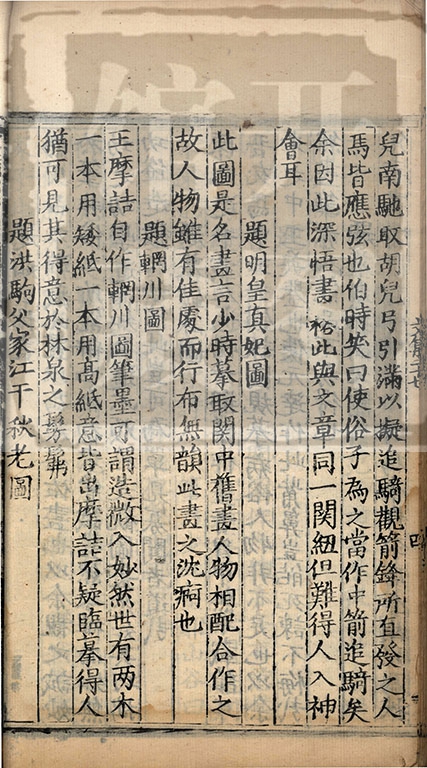 兒南馳取胡兒弓引滿以擬追騎觀箭鋒所直發之人
馬皆應弦也伯時笑曰使俗子為之當作中箭追騎矣
余因此深悟畫格此與文章同一関紐但難得人入神
會耳
題明皇真妃圖
此圖是名畫言少時摹取関中舊畫人物相配合作之
故人物雖有佳處而行布無韻此畫之沈痾也
題輞川圖
王摩詰自作輞川圖筆墨可謂造微入妙然世有两本
一本用矮紙一本用髙紙意皆出摩詰不疑臨摹得人
猶可見其得意於林泉之髣髴
題洪駒父家江干秋老圖